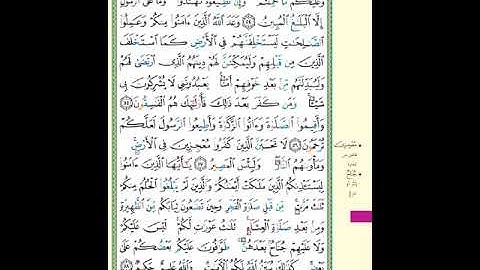 وَعَلَيْكُم مَّا حُمِّلْتُمْ ۖ وَإِن تُطِيعُوهُ تَهْتَدُوا۟ ۚ وَمَا عَلَى ٱلرَّسُولِ
إِلَّا ٱلْبَلَـٰغُ ٱلْمُبِينُ ﴿٥٤﴾ وَعَدَ ٱللَّهُ ٱلَّذِينَ ءَامَنُوا۟ مِنكُمْ وَعَمِلُوا۟
ٱلصَّـٰلِحَـٰتِ لَيَسْتَخْلِفَنَّهُمْ فِى ٱلْأَرْضِ كَمَا ٱسْتَخْلَفَ
ٱلَّذِينَ مِن قَبْلِهِمْ وَلَيُمَكِّنَنَّ لَهُمْ دِينَهُمُ ٱلَّذِى ٱرْتَضَىٰ لَهُمْ
وَلَيُبَدِّلَنَّهُم مِّنۢ بَعْدِ خَوْفِهِمْ أَمْنًا ۚ يَعْبُدُونَنِى لَا يُشْرِكُونَ بِى
شَيْـًٔا ۚ وَمَن كَفَرَ بَعْدَ ذَٰلِكَ فَأُو۟لَـٰٓئِكَ هُمُ ٱلْفَـٰسِقُونَ ﴿٥٥﴾
وَأَقِيمُوا۟ ٱلصَّلَوٰةَ وَءَاتُوا۟ ٱلزَّكَوٰةَ وَأَطِيعُوا۟ ٱلرَّسُولَ لَعَلَّكُمْ
تُرْحَمُونَ ﴿٥٦﴾ لَا تَحْسَبَنَّ ٱلَّذِينَ كَفَرُوا۟ مُعْجِزِينَ فِى ٱلْأَرْضِ ۚ
وَمَأْوَىٰهُمُ ٱلنَّارُ ۖ وَلَبِئْسَ ٱلْمَصِيرُ ﴿٥٧﴾ يَـٰٓأَيُّهَا ٱلَّذِينَ ءَامَنُوا۟
لِيَسْتَـْٔذِنكُمُ ٱلَّذِينَ مَلَكَتْ أَيْمَـٰنُكُمْ وَٱلَّذِينَ لَمْ يَبْلُغُوا۟ ٱلْحُلُمَ مِنكُمْ
ثَلَـٰثَ مَرَّٰتٍ ۚ مِّن قَبْلِ صَلَوٰةِ ٱلْفَجْرِ وَحِينَ تَضَعُونَ ثِيَابَكُم مِّنَ ٱلظَّهِيرَةِ
وَمِنۢ بَعْدِ صَلَوٰةِ ٱلْعِشَآءِ ۚ ثَلَـٰثُ عَوْرَٰتٍ لَّكُمْ ۚ لَيْسَ عَلَيْكُمْ
وَلَا عَلَيْهِمْ جُنَاحٌۢ بَعْدَهُنَّ ۚ طَوَّٰفُونَ عَلَيْكُم بَعْضُكُمْ عَلَىٰ
بَعْضٍ ۚ كَذَٰلِكَ يُبَيِّنُ ٱللَّهُ لَكُمُ ٱلْـَٔايَـٰتِ ۗ وَٱللَّهُ عَلِيمٌ حَكِيمٌ ﴿٥٨﴾